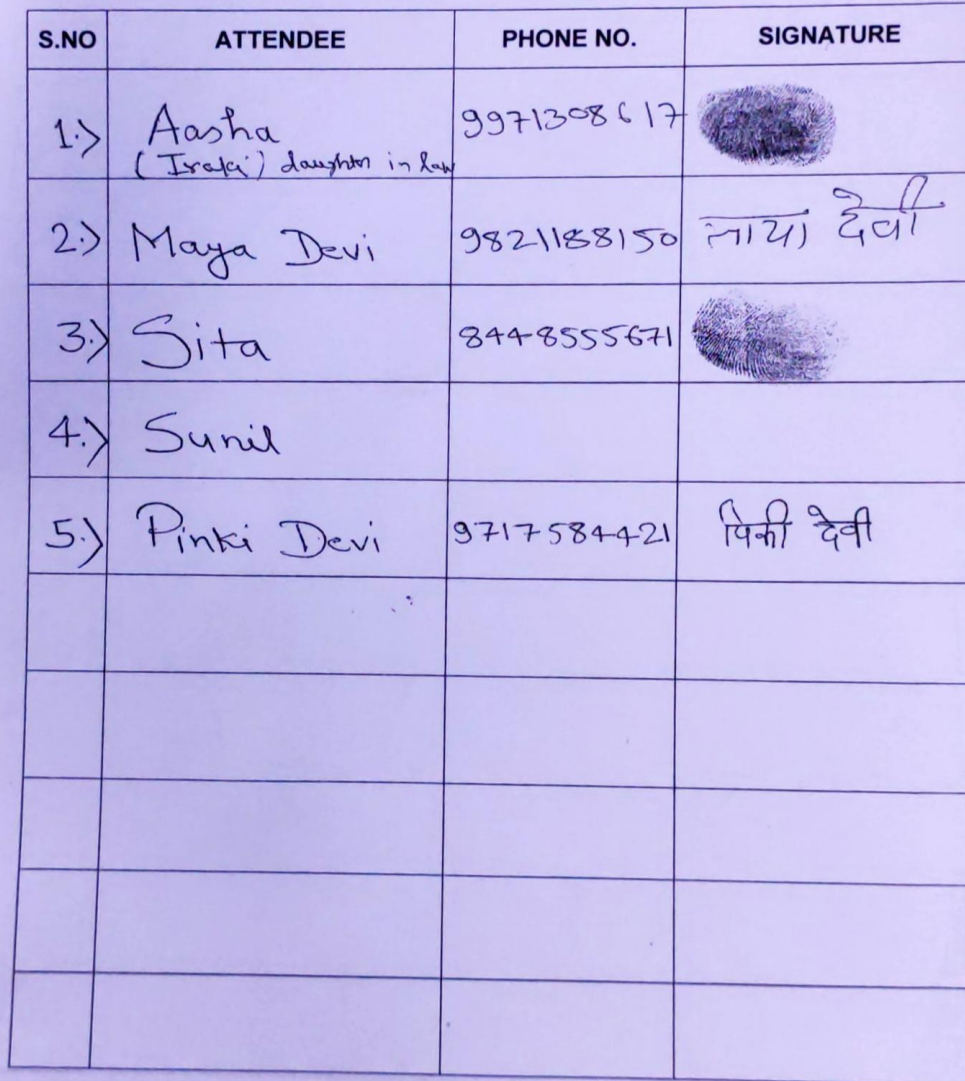 S.NO ATTENDEE PHONE NO. SIGNATURE
1.) Aasha 9971308617
(Iraki) daughter in law
2.) Maya Devi 9821188150 माया देवी
3.) Sita 8448555671
4.) Sunil
5.) Pinki Devi 9717584421 पिंकी देवी